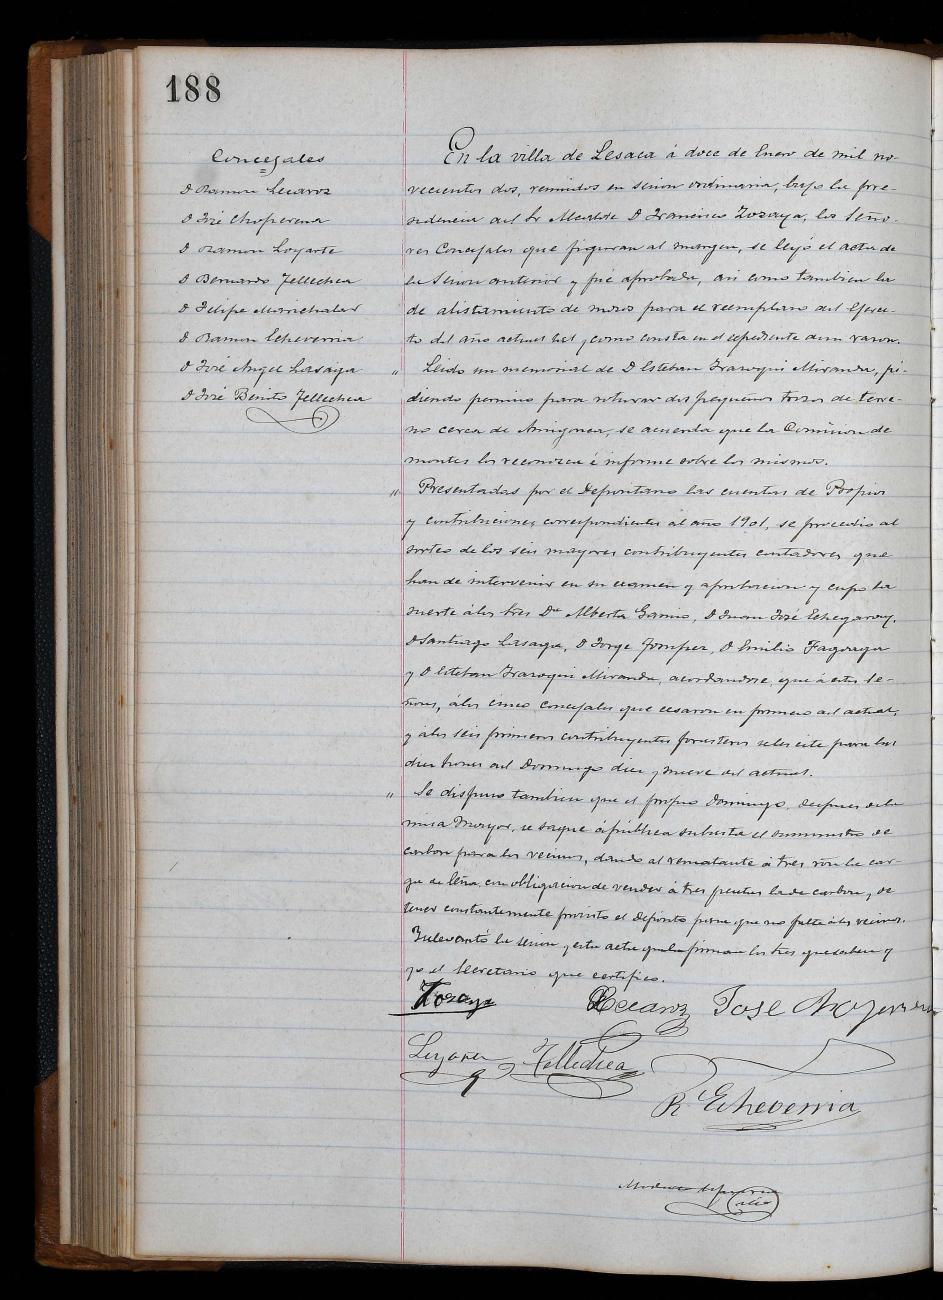 188
Concejales
D Ramon Lecaroz
D José Choperena
D Ramon Loyarte
D Bernardo Tellechea
D Felipe Marichalar
D Ramon Echeverria
D José Angel Lasaga
D José Benito Tellechea
En la villa de Lesaca á doce de Enero de mil no-
vecientos dos, reunidos en sesion ordinaria, bajo la pre-
sidencia del Sr Alcalde D Francisco Zozaya, los Seño-
res Concejales que figuran al margen, se leyó el acta de
la sesion anterior y fué aprobada, asi como tambien la
de alistamiento de mozos para el reemplazo del Ejerci-
to del año actual tal y como consta en el espediente de su razon.
" Leido un memorial de D Esteban Irazoqui Miranda, pi-
diendo permiso para roturar dos pequeños trozos de terre-
no cerca de, se acuerda que la Comision de
montes los reconozca é informe sobre los mismos.
" Presentadas por el Depositario las cuentas de Propios
y contribuciones correspondientes al año 1901, se procedio al
sorteo de los seis mayores contribuyentes contadores que
han de intervenir en su examen y aprobacion y cupo la
suerte á los Sres Da Alberta Gamio, D Juan José Echegaray,
D Santiago Lasaga, D Jorge, D Emilio Fagoaga
y D Esteban Irazoqui Miranda, acordandose que á estos se-
ñores, á los cinco concejales que cesaron en primero del actual,
y á los seis primeros contribuyentes forasteros se les cite para las
diez horas del Domingo diez y nueve del actual.
" Se dispuso tambien que el propio Domingo, despues de la
misa Mayor, se saque á pública subasta el suministro de
carbon para los vecinos, dando al rematante á tres la car-
ga de leña, con obligacion de vender á tres la de carbon, y de
tener constantemente provisto el deposito para que no falte á los vecinos.
Se levantó la sesion y esta acta que la firman los Sres que saben y
yo el Secretario que certifico.
Zozaya
Lecaroz
Jose Choperena
Loyarte
Tellechea
R. Echeverria